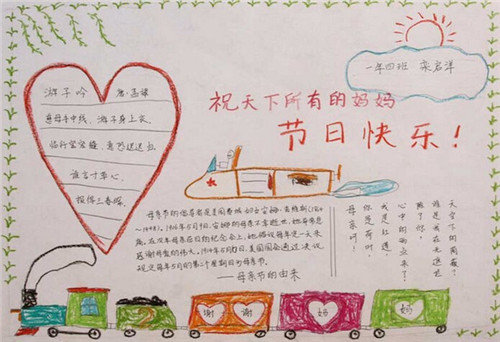 一年四班
祝天下所有的妈妈
节日快乐!
游子吟 唐·孟郊
慈母手中线,游子身上衣。
临行密密缝,意恐迟迟归。
谁言寸草心,
报得三春晖。
母亲节的倡导者是美国费城的安娜·
-1948)。1906年5月9日,安娜的母亲不幸逝世,她
痛。在次年母亲逝日的纪念会上,她倡议每年定一天来
感谢母爱的伟大。1914年5月7日,美国国会通过决议,
规定每年5月的第二个星期日为母亲节。
——母亲节的由来
母亲啊!
你是荷叶,
我是红莲,
心中的雨点来了!
除了你,
谁是我在无遮拦
天空下的荫蔽?
谢 谢 妈 妈